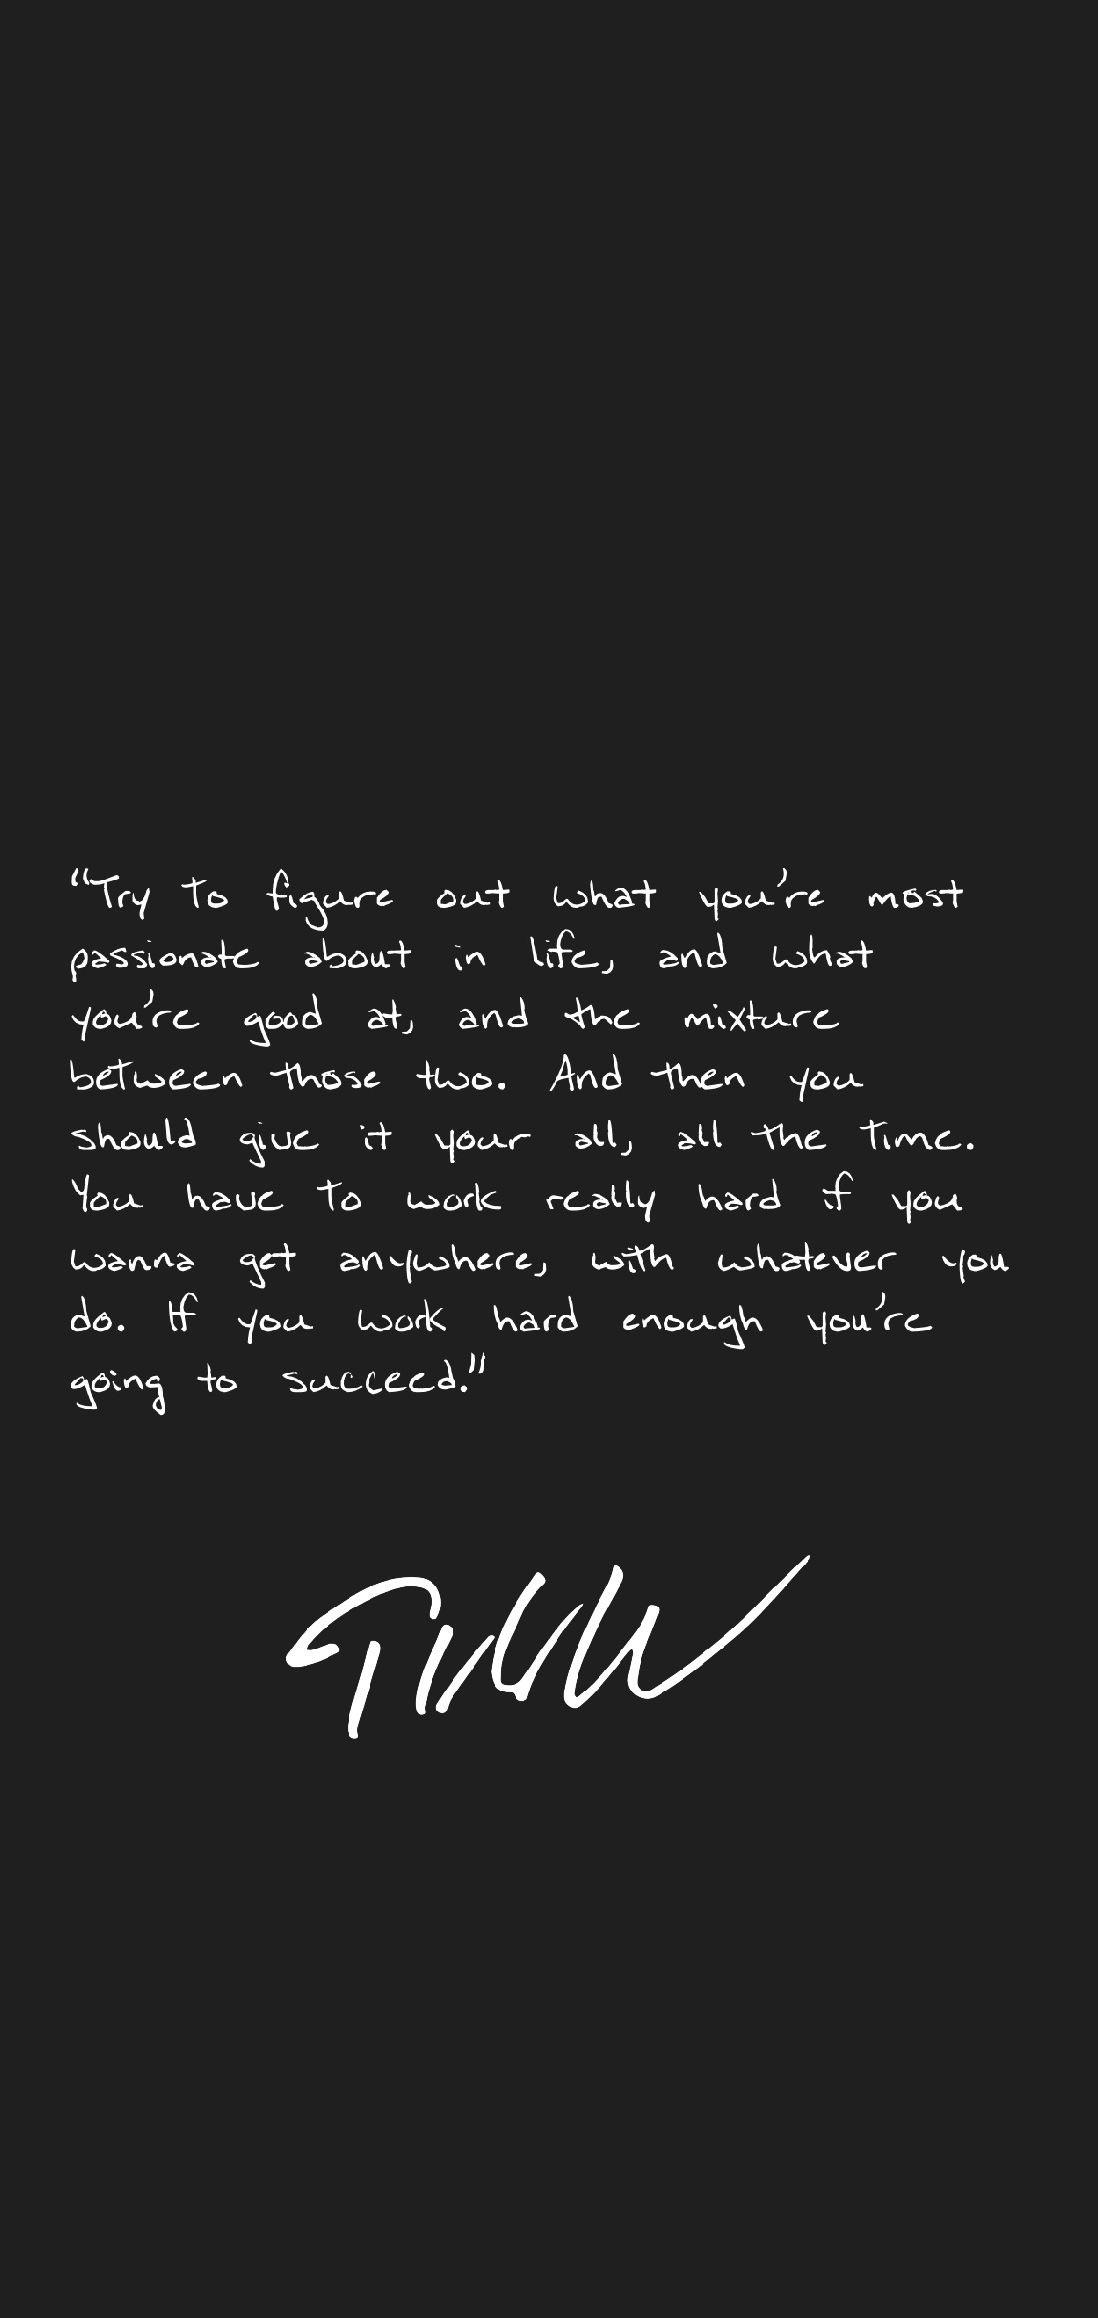 “Try to figure out what you're most
passionate about in life, and what
you're good at, and the mixture
between those two. And then you
should give it your all, all the time.
You have to work really hard if you
wanna get anywhere, with whatever you
do. If you work hard enough you're
going to succeed."